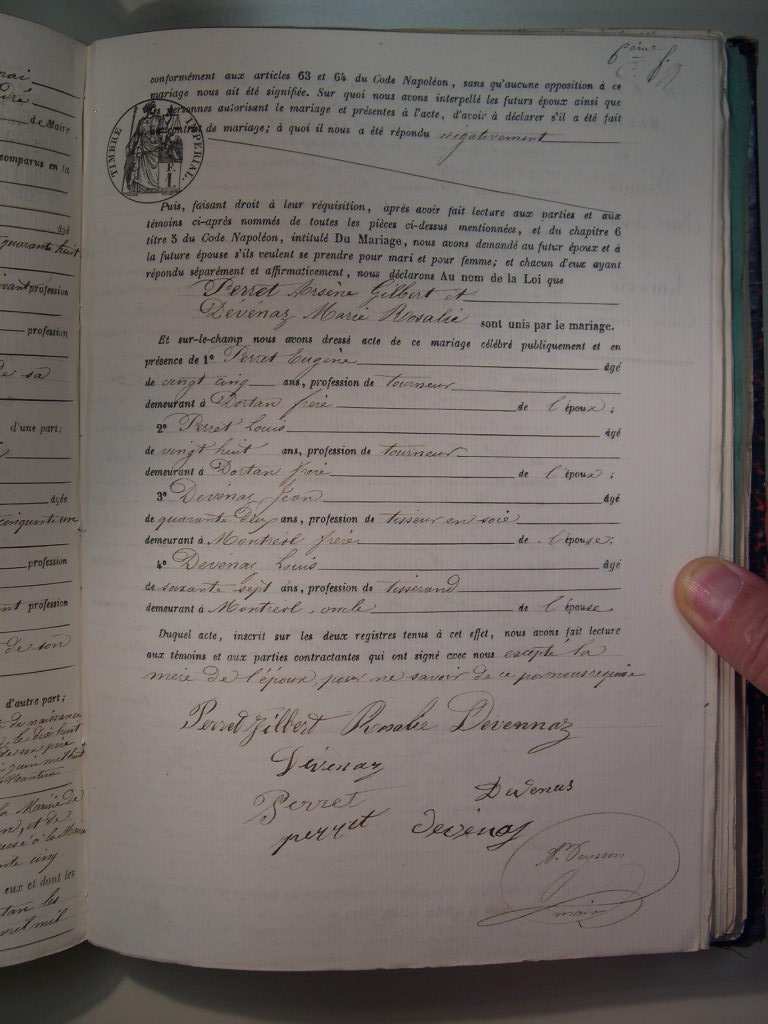 rai
iré
de Maire
comparus en la
âgé
quarante huit
vant profession
profession
de sa
d'une part;
âgée
cinquante un
profession
nt profession
de son
d'autre part;
de naissance
la Mairie de
n, et de
nte cinq
eux et dont les
conformément aux articles 63 et 64 du Code Napoléon, sans qu'aucune opposition à ce
mariage nous ait été signifiée. Sur quoi nous avons interpellé les futurs époux ainsi que
les personnes autorisant le mariage et présentes à l'acte, d'avoir à déclarer s'il a été fait
un contrat de mariage; à quoi il nous a été répondu négativement
TIMBRE IMPÉRIAL
Puis, faisant droit à leur réquisition, après avoir fait lecture aux parties et aux
témoins ci-après nommés de toutes les pièces ci-dessus mentionnées, et du chapitre 6
titre 5 du Code Napoléon, intitulé Du Mariage, nous avons demandé au futur époux et à
la future épouse s'ils veulent se prendre pour mari et pour femme; et chacun d'eux ayant
répondu séparément et affirmativement, nous déclarons Au nom de la Loi que
Perret Arsène Gilbert et
Dévénaz Marie Rosalie sont unis par le mariage.
Et sur-le-champ nous avons dressé acte de ce mariage célébré publiquement et en
présence de 1° Perret Eugène âgé
de vingt cinq ans, profession de tourneur
demeurant à Dortan frère de l'époux;
2° Perret Louis âgé
de vingt huit ans, profession de tourneur
demeurant à Dortan frère de l'époux;
3° Devenaz Jean âgé
de quarante deux ans, profession de tisseur en soie
demeurant à Montreal frère de l'épouse;
4° Devenaz Louis âgé
de soixante sept ans, profession de tisserand
demeurant à Montreal oncle de l'épouse
Duquel acte, inscrit sur les deux registres tenus à cet effet, nous avons fait lecture
aux témoins et aux parties contractantes qui ont signé avec nous excepté la
mère de l'époux pour ne savoir de ce par nous requise
Perret Gilbert Rosalie Devennaz
Dévenaz
Perret Devenas
perret devénaz
maire